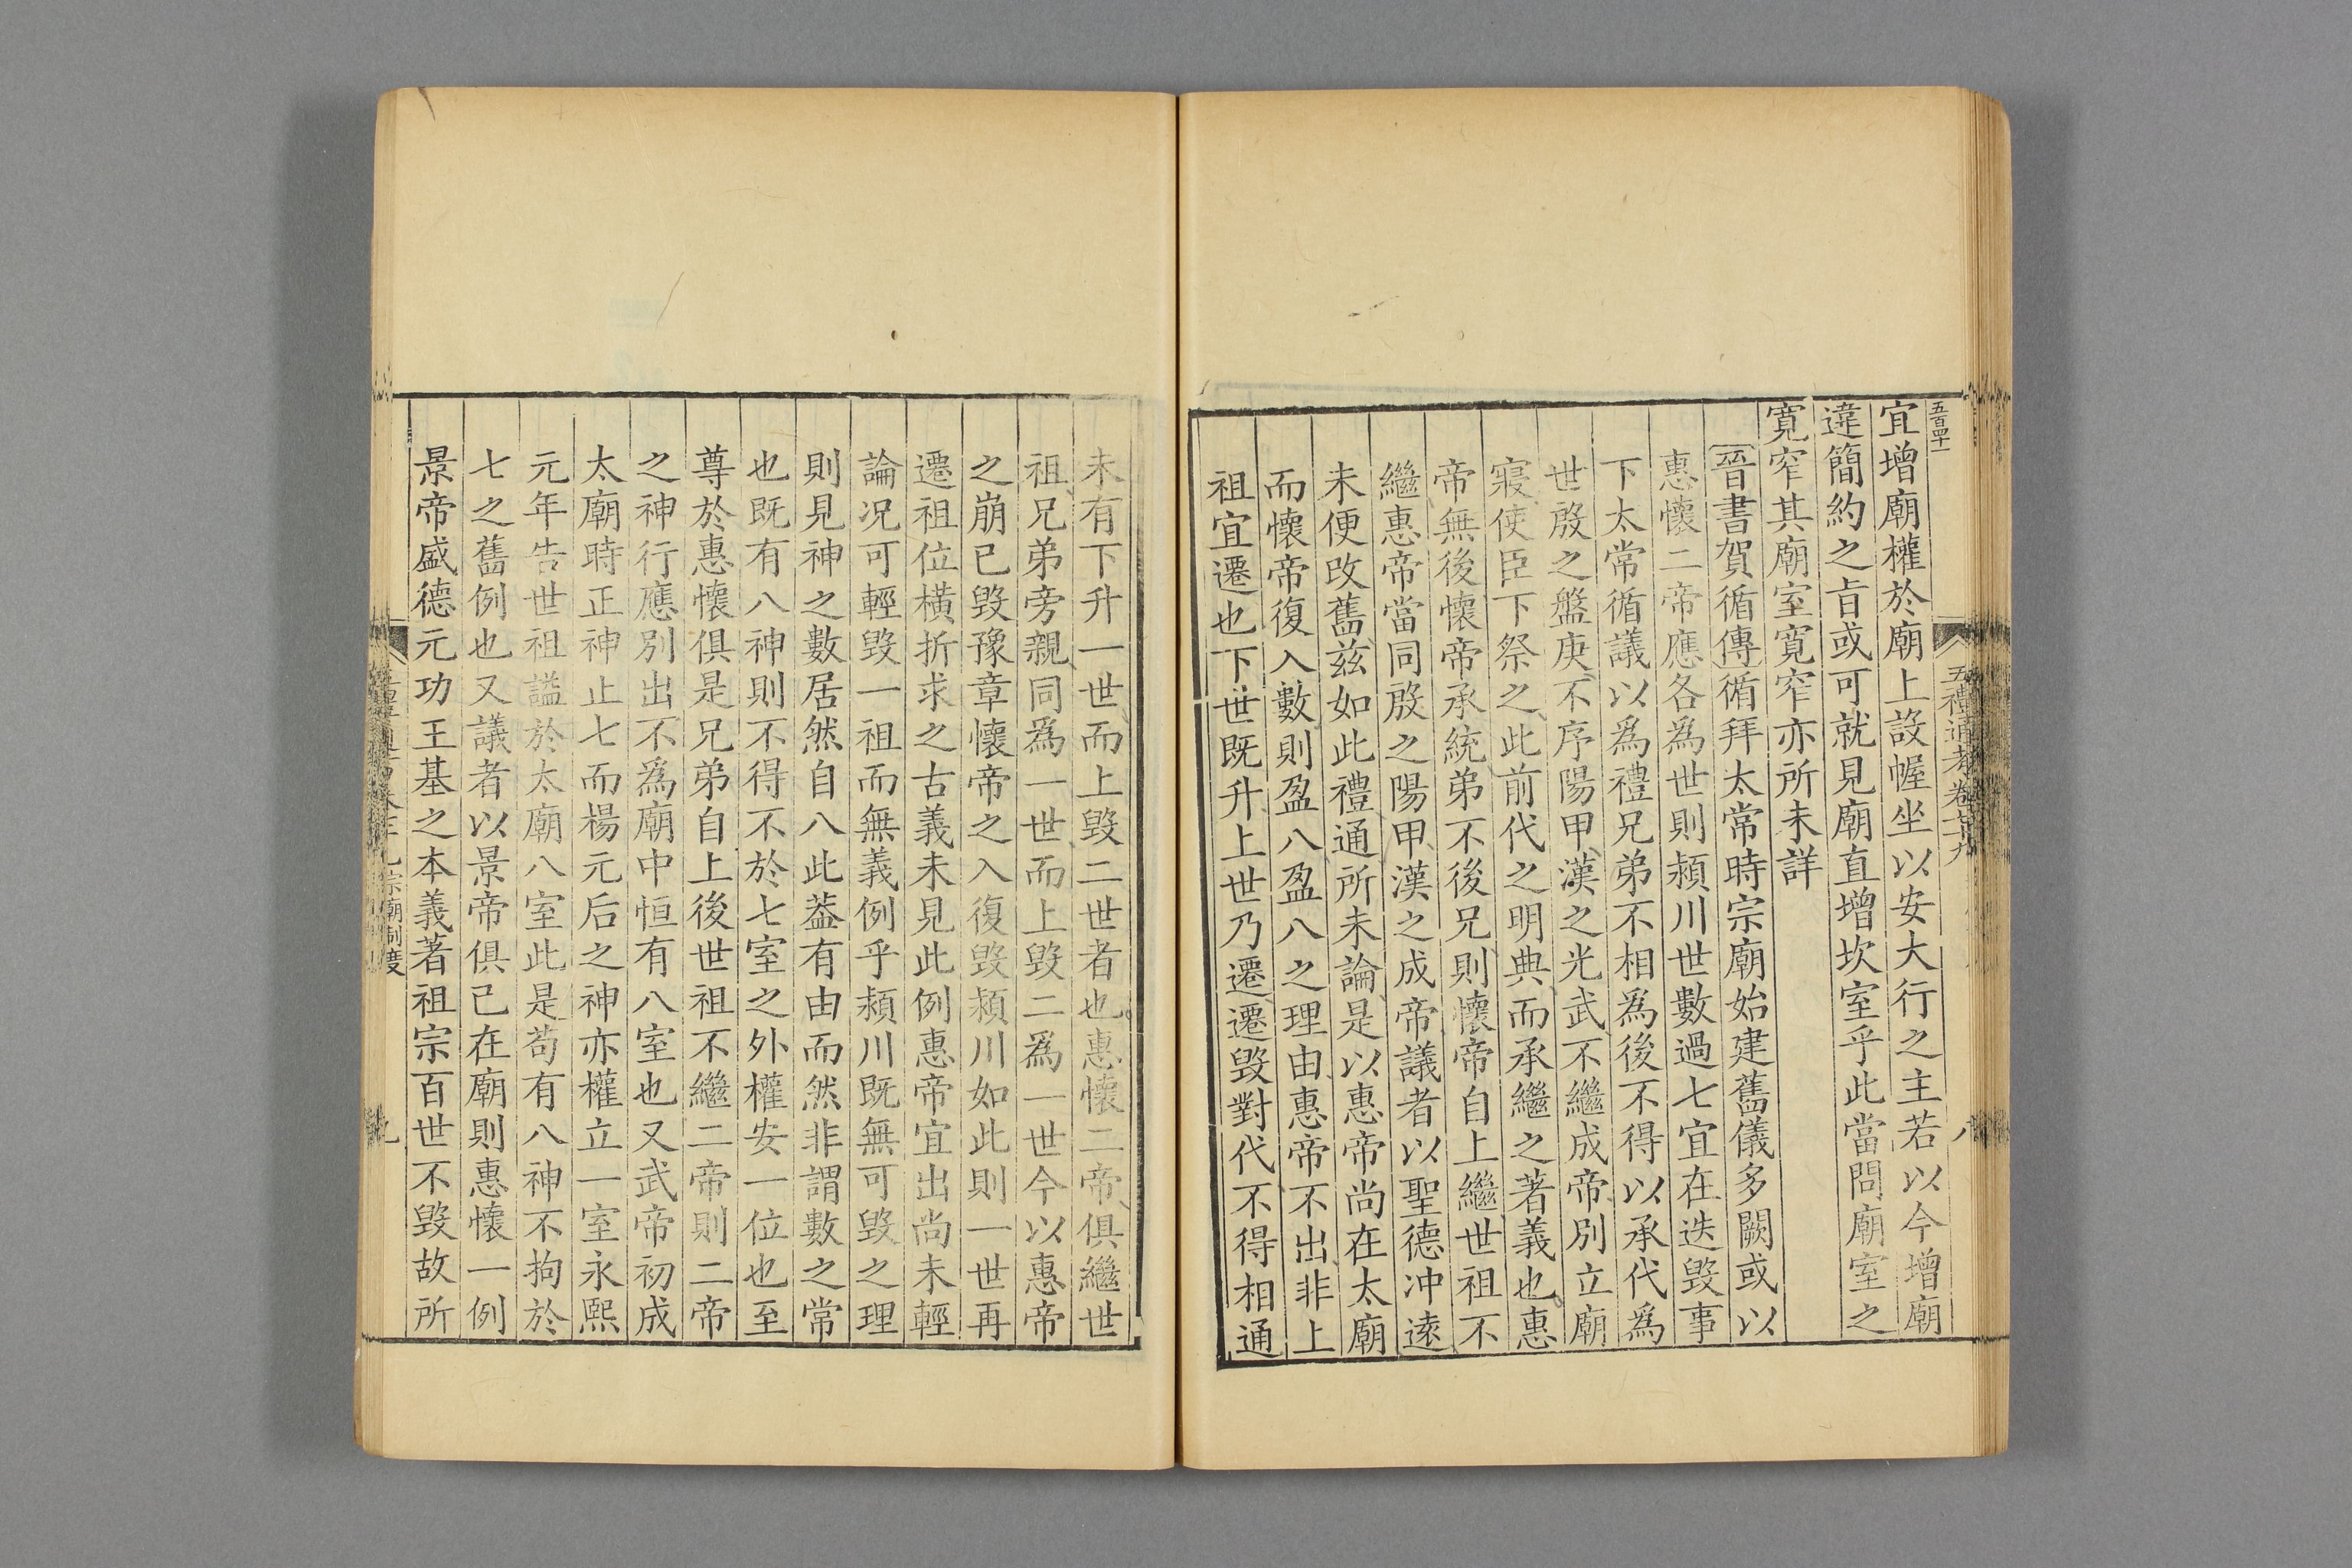 五百四十一
宜增廟權於廟上設幄坐以安大行之主若以今增廟
違簡約之旨或可就見廟直增坎室乎此當問廟室之
寛窄其廟室寛窄亦所未詳
晉書賀循傳循拜太常時宗廟始建舊儀多闕或以
惠懷二帝應各爲世則潁川世數過七宜在迭毀事
下太常循議以爲禮兄弟不相爲後不得以承代爲
世殷之盤庚不序陽甲漢之光武不繼成帝別立廟
寢使臣下祭之此前代之明典而承繼之著義也惠
帝無後懷帝承統弟不後兄則懷帝自上繼世祖不
繼惠帝當同殷之陽甲漢之成帝議者以聖德冲遠
未便改舊茲如此禮通所未論是以惠帝尚在太廟
而懷帝復入數則盈八盈八之理由惠帝不出非上
祖宜遷也下世既升上世乃遷遷毀對代不得相通
五禮通考卷五十九
八
未有下升一世而上毀二世者也惠懷二帝俱繼世
祖兄弟旁親同爲一世而上毀二爲一世今以惠帝
之崩已毀豫章懷帝之入復毀潁川如此則一世再
遷祖位橫折求之古義未見此例惠帝宜出尚未輕
論况可輕毀一祖而無義例乎潁川既無可毀之理
則見神之數居然自八此葢有由而然非謂數之常
也既有八神則不得不於七室之外權安一位也至
尊於惠懷俱是兄弟自上後世祖不繼二帝則二帝
之神行應別出不爲廟中恒有八室也又武帝初成
太廟時正神止七而楊元后之神亦權立一室永熙
元年告世祖諡於太廟八室此是苟有八神不拘於
七之舊例也又議者以景帝俱已在廟則惠懷一例
景帝盛德元功王基之本義著祖宗百世不毀故所
宗廟制度
九